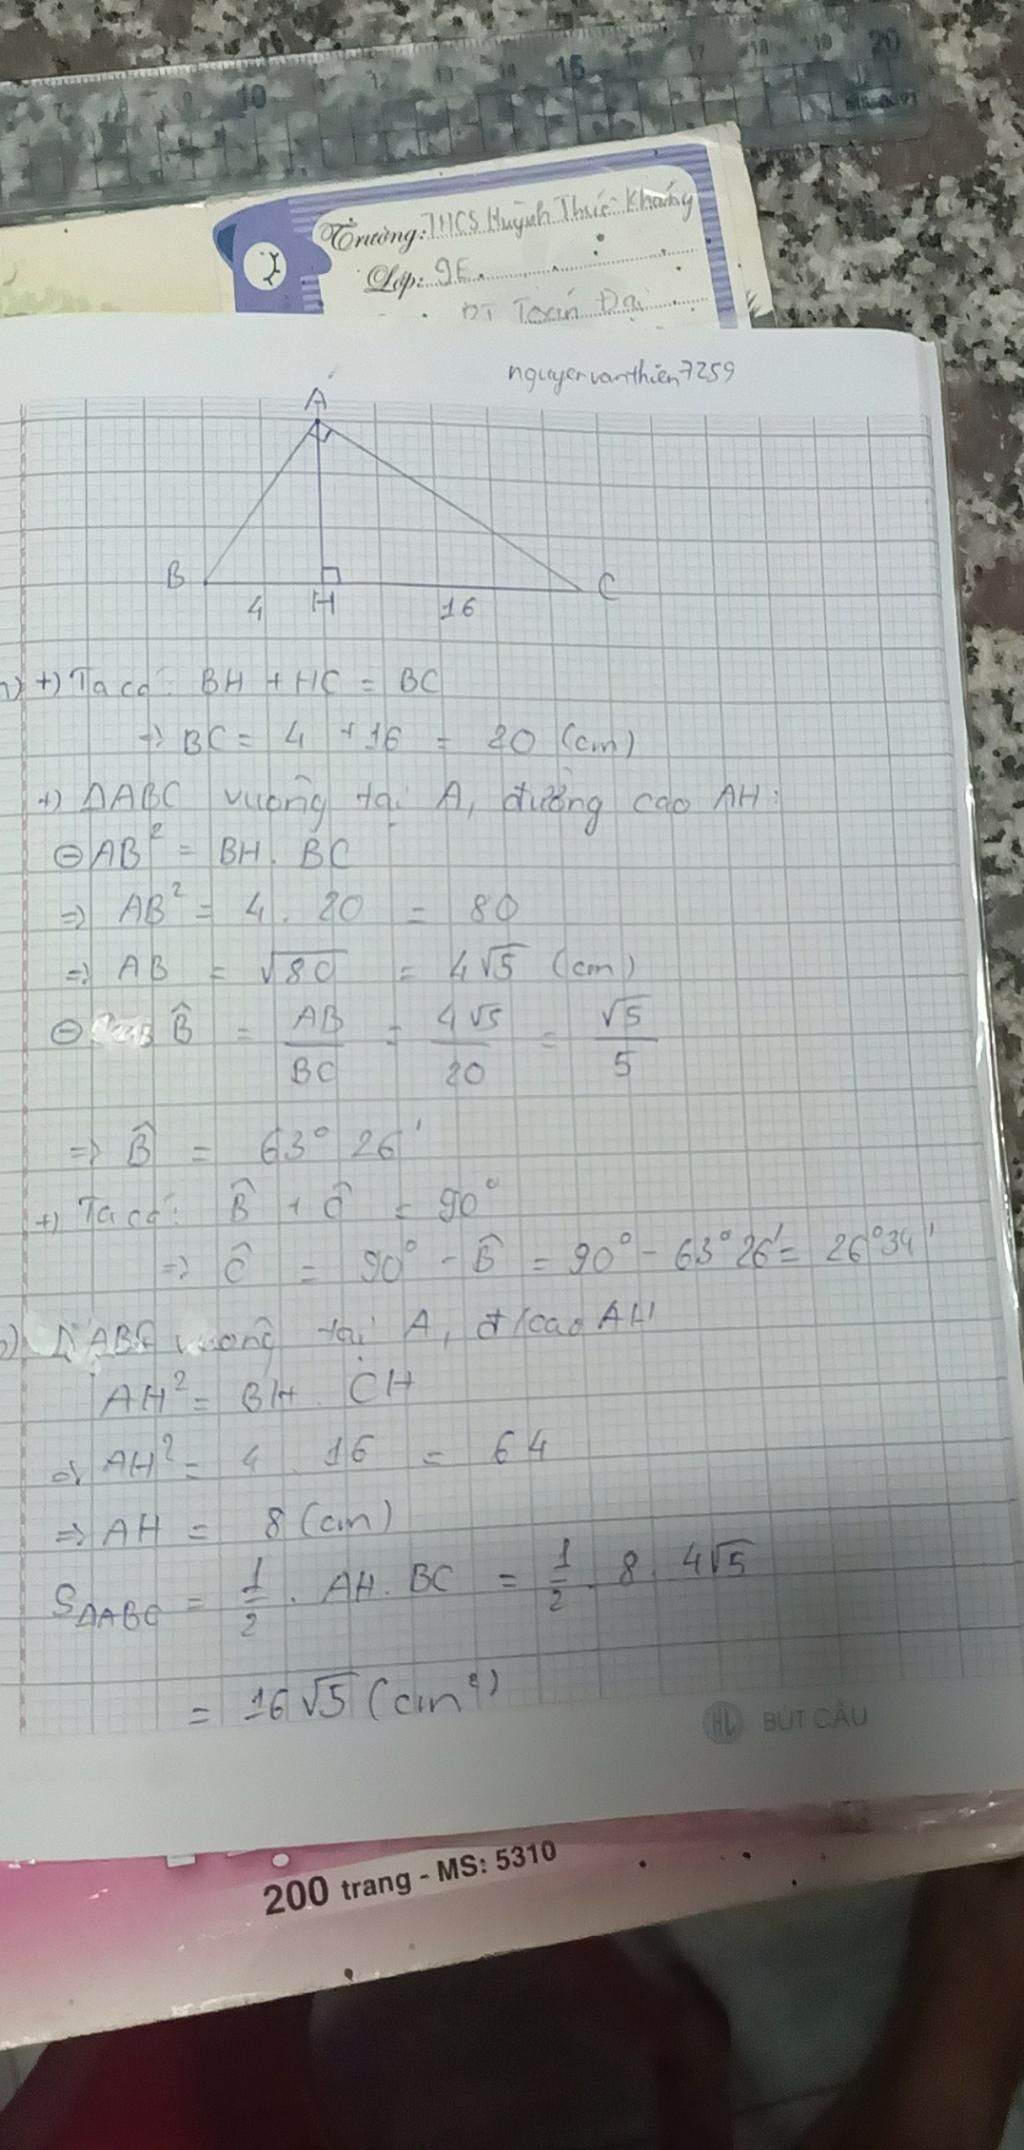 10 11 12 13 14 15 17 18 19 20
2
Trường: THCS Huỳnh Thúc Kháng
Lớp: 9E
ĐT Toán Đại
nguyenvanthiên7259
A
B
4
H
16
C
+) Ta có: BH + HC = BC
=> BC = 4 + 16 = 20 (cm)
+) ΔABC vuông tại A, đường cao AH:
⊖ AB² = BH . BC
=> AB² = 4 . 20 = 80
=> AB = √80 = 4√5 (cm)
⊖ B̂ = AB/BC = 4√5/20 = √5/5
=> B̂ = 63° 26'
+) Ta có: B̂ + Ĉ = 90°
=> Ĉ = 90° - B̂ = 90° - 63°26' = 26°34'
ΔABC vuông tại A, đ/cao AH
AH² = BH . CH
AH² = 4 . 16 = 64
=> AH = 8 (cm)
SΔABC = 1/2 . AH . BC = 1/2 . 8 . 4√5
= 16√5 (cm²)
HL BÚT CÂU
200 trang - MS: 5310